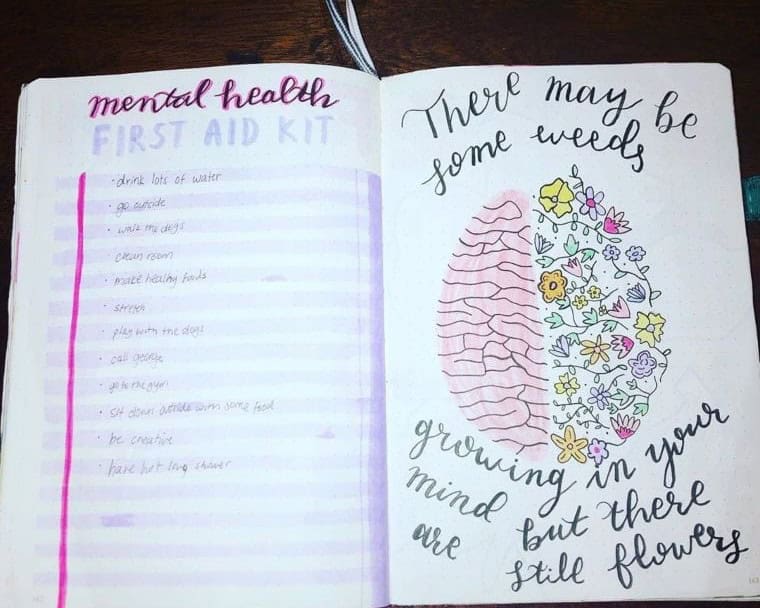 mental health
FIRST AID KIT
· drink lots of water
· go outside
· walk the dogs
clean room
· make healthy foods
· stretch
· play with the dogs
· call george
· go to the gym
· sit down outside with some food
· be creative
· have hot long shower
There may be
some weeds
growing in your
mind but there
are still flowers